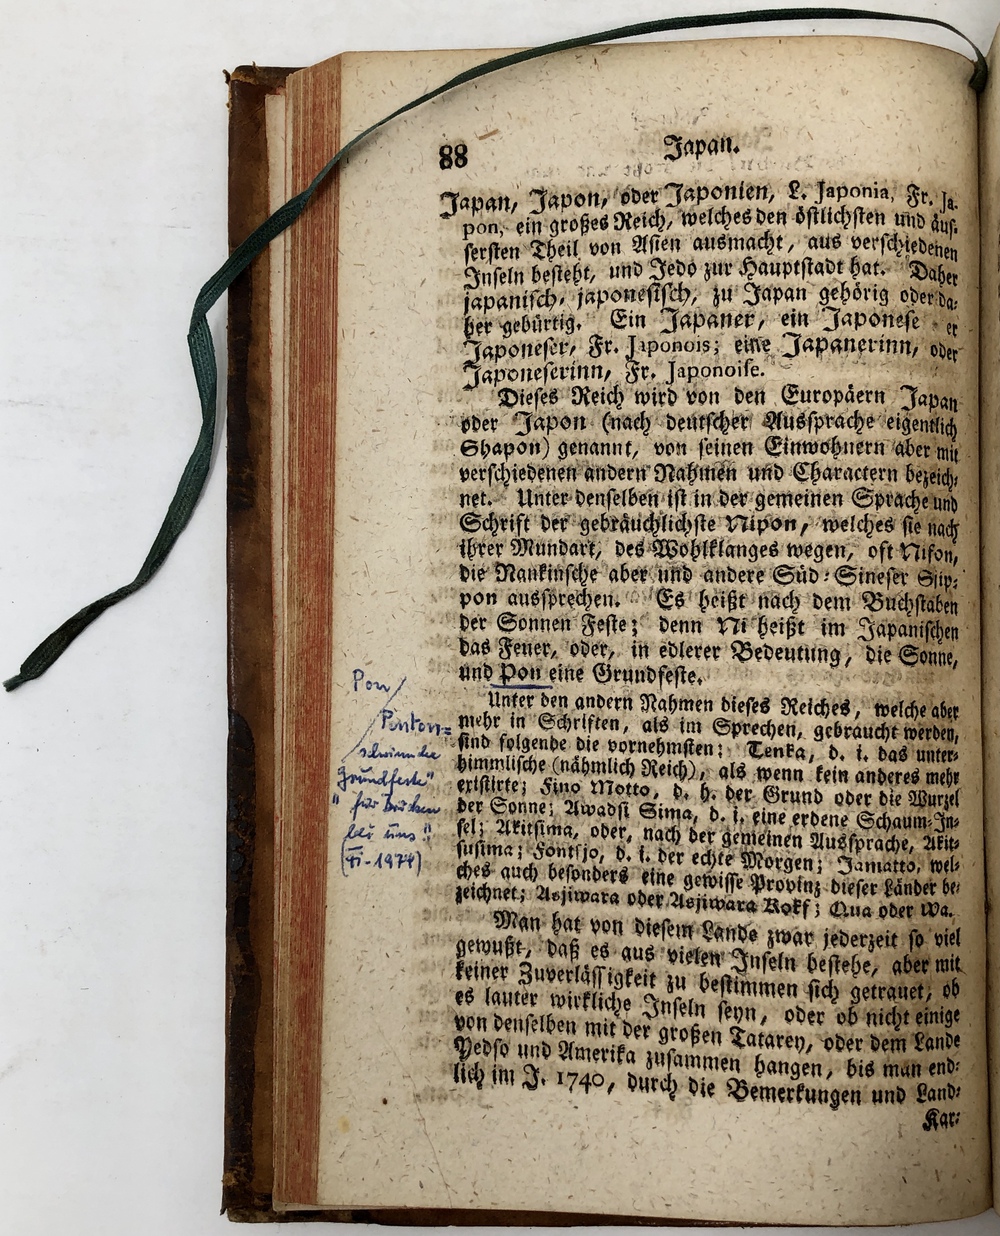 88
Japan.
Japan, Japon, oder Japonien, L. Japonia, Fr. Ja-
pon, ein großes Reich, welches den östlichsten und äus-
sersten Theil von Asien ausmacht, aus verschiedenen
Inseln besteht, und Jedo zur Hauptstadt hat. Daher
japanisch, japonesisch, zu Japan gehörig oder da-
her gebürtig. Ein Japaner, ein Japonese er
Japoneser, Fr. Japonois; eine Japanerinn, oder
Japoneserinn, Fr. Japonoise.
Dieses Reich wird von den Europäern Japan
oder Japon (nach deutscher Aussprache eigentlich
Shapon) genannt, von seinen Einwohnern aber mit
verschiedenen andern Nahmen und Charactern bezeich-
net. Unter denselben ist in der gemeinen Sprache und
Schrift der gebräuchlichste Nipon, welches sie nach
ihrer Mundart, des Wohlklanges wegen, oft Nifon,
die Nankinsche aber und andere Süd-Sineser Sjip-
pon aussprechen. Es heißt nach dem Buchstaben
der Sonnen Feste; denn Ni heißt im Japanischen
das Feuer, oder, in edlerer Bedeutung, die Sonne,
und Pon eine Grundfeste.
Unter den andern Nahmen dieses Reiches, welche aber
mehr in Schriften, als im Sprechen, gebraucht werden,
sind folgende die vornehmsten: Tenka, d. i. das unter-
himmlische (nähmlich Reich), als wenn kein anderes mehr
existirte; Fino Motto, d. h. der Grund oder die Wurzel
der Sonne; Awadsi Sima, d. i. eine erdene Schaum-In-
sel; Akitsima, oder, nach der gemeinen Aussprache, Akit-
susima; Fontsjo, d. i. der echte Morgen; Jamatto, wel-
ches auch besonders eine gewisse Provinz dieser Länder be-
zeichnet; Asjiwara oder Asjiwara Kokf; Qua oder Wa.
Man hat von diesem Lande zwar jederzeit so viel
gewußt, daß es aus vielen Inseln bestehe, aber mit
keiner Zuverlässigkeit zu bestimmen sich getrauet, ob
es lauter wirkliche Inseln seyn, oder ob nicht einige
von denselben mit der großen Tatarey, oder dem Lande
Yedso und Amerika zusammen hangen, bis man end-
lich im J. 1740, durch die Bemerkungen und Land-
Kar-
Pon/
Grundfeste"
uns"